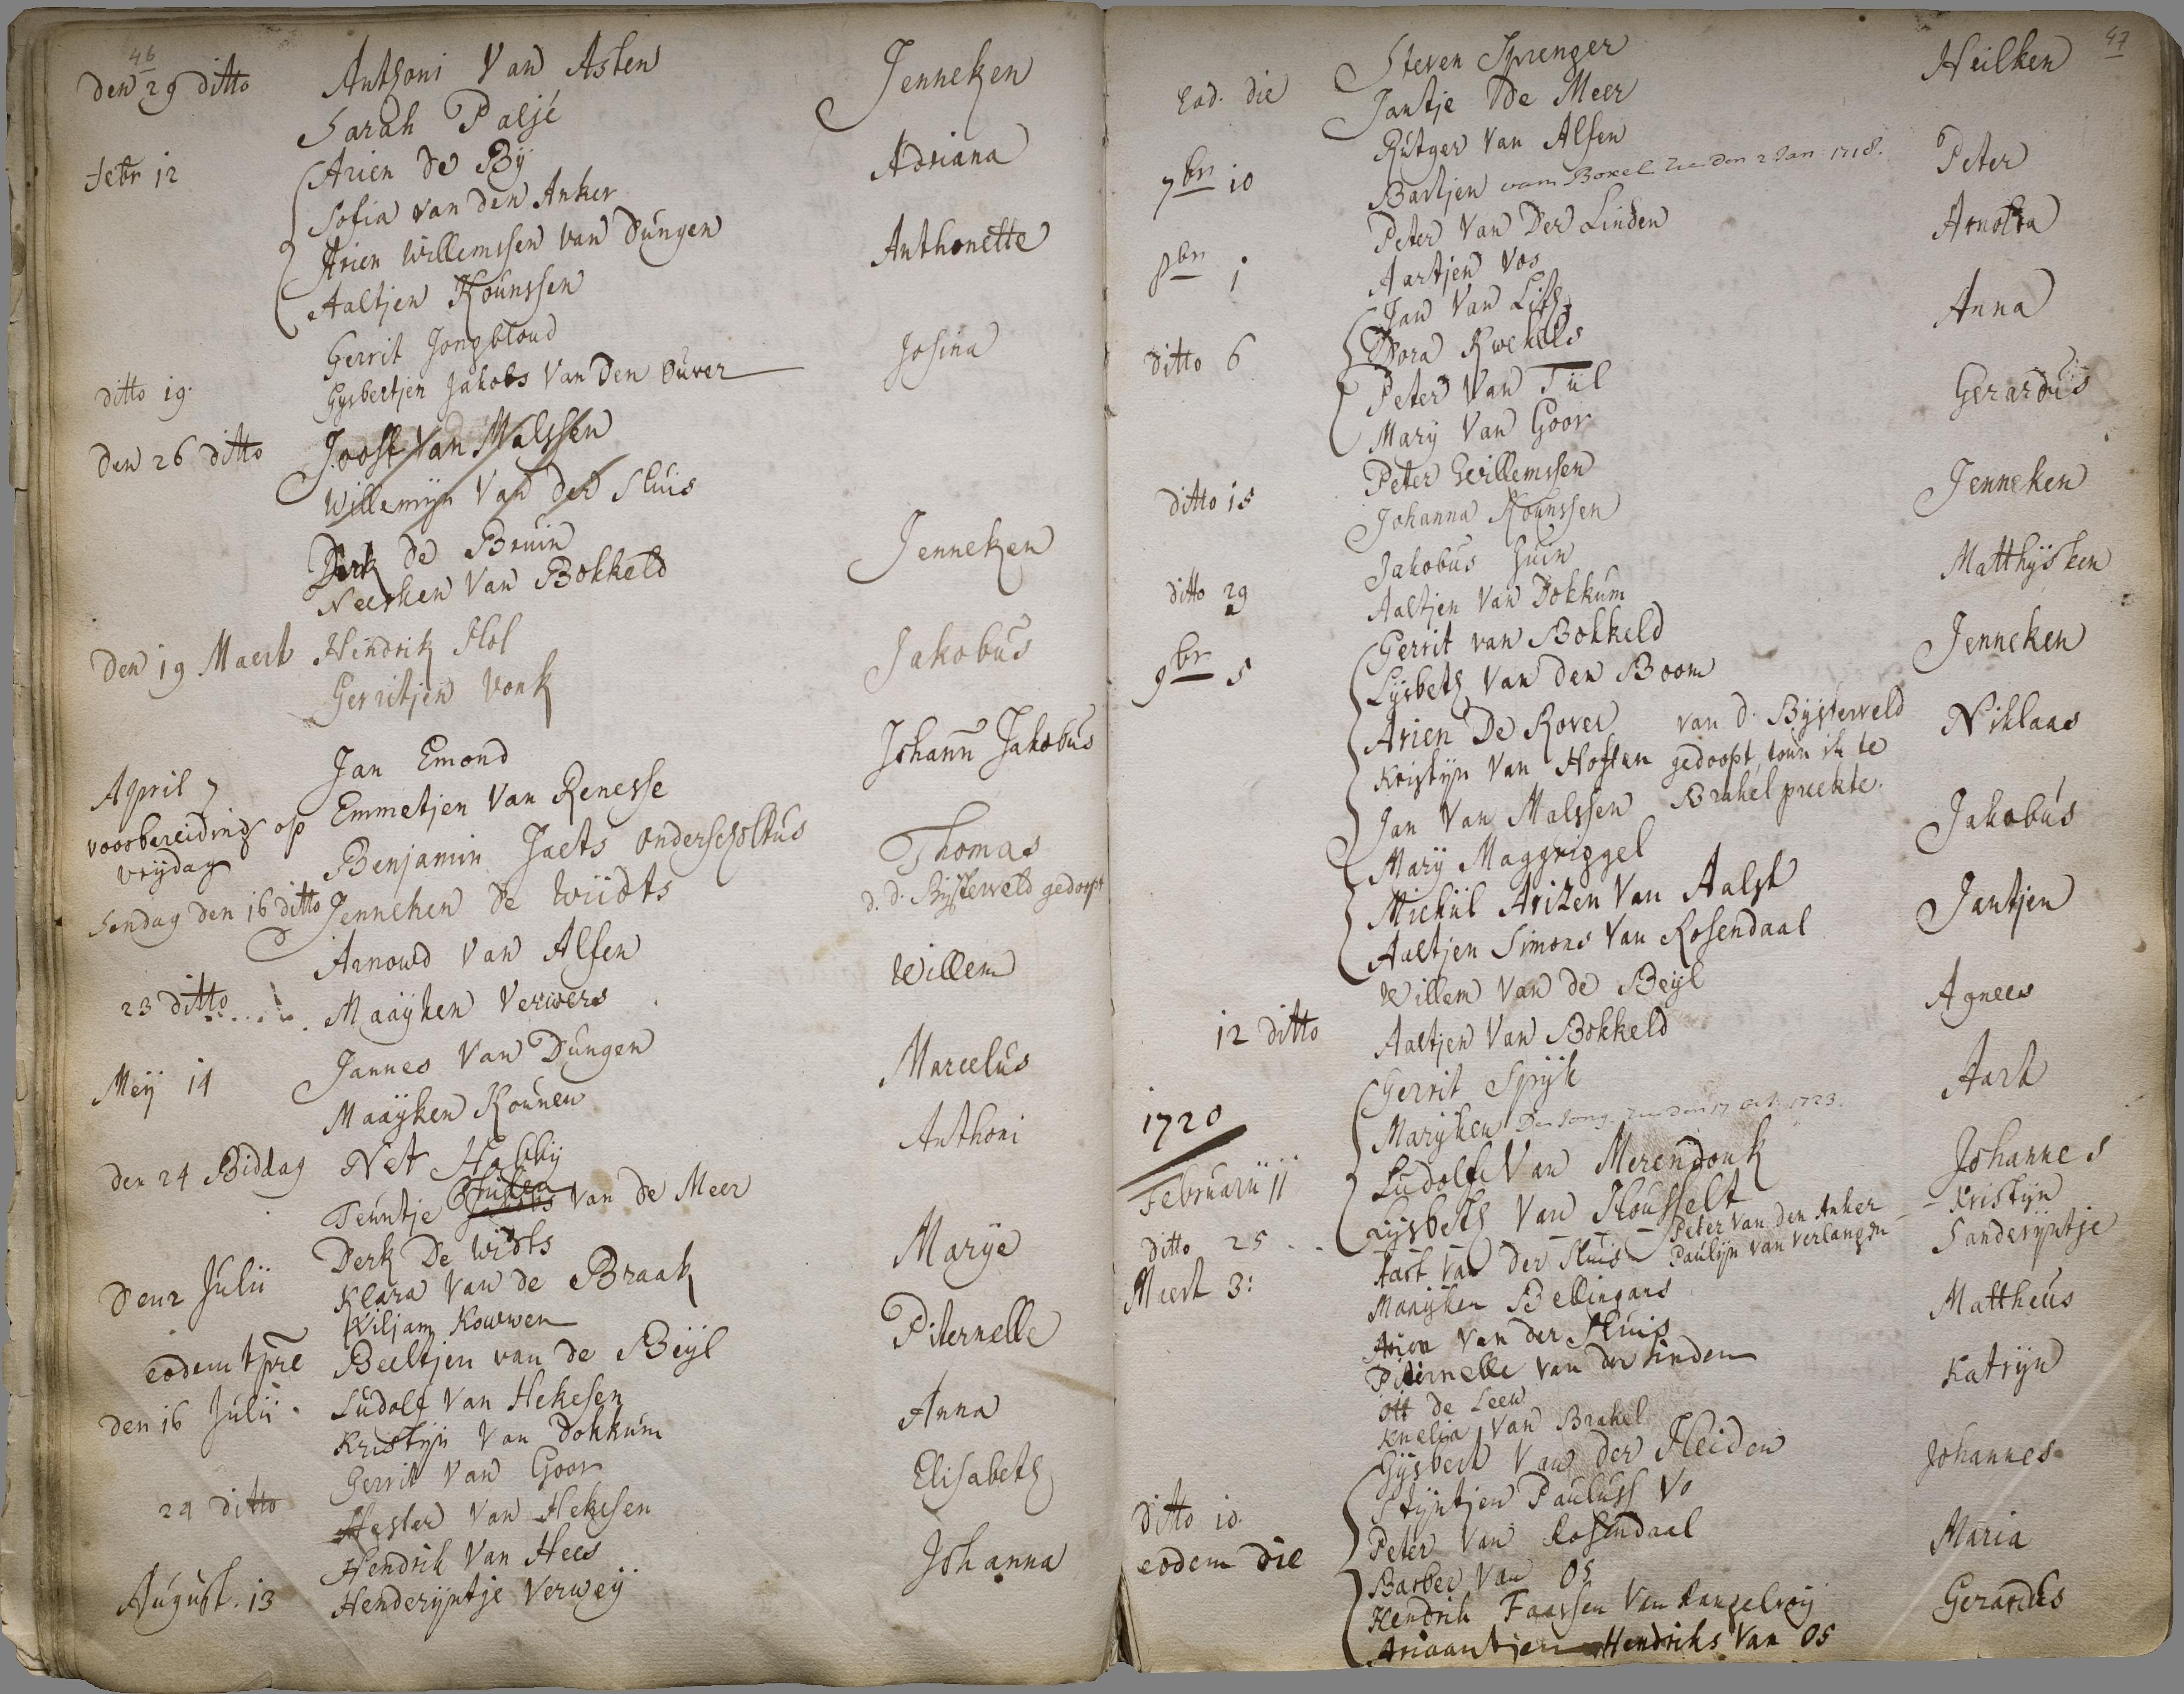 46
den 29 ditto Anthoni Van Asten Jenneken
Sarah Paljé
Febr 12 Arien de Bÿ Adriana
Sofia van den Anker
Arien Willemssen van Dungen Anthonette
Aaltjen Kounssen
ditto 19. Gerrit Jongbloud Josina
Gysbertjen Jakobs Van Den Ouver
den 26 ditto Joost Van Malssen
Willemÿn Van der Sluis
Derk de Bruin Jenneken
Neesken Van Bokkeld
Den 19 Maert Hendrik Hol Jakobus
Gerritjen Vonk
April 7 Jan Emond Johann Jakobus
voorbereiding op Emmetjen Van Renesse
vrÿdag Benjamin Jaets onderscholtus Thomas
Sondag den 16 ditto Jenneken de Wiidts d. d. Bÿsterveld gedoopt
Arnoud Van Alfen Willem
23 ditto Maaÿken Verwers
Meÿ 14 Jannes Van Dungen Marcelus
Maaÿken Kounen
den 24 Biddag Net Hakkÿ Anthoni
Teuntje Jakobs van de Meer
Den 2 Julii Derk De Widts Marÿe
Klara Van de Braak
eodem tpre Wiljam Kouwen Piternelle
Beeltjen van de Beÿl
den 16 Julii Ludolf Van Hekesen Anna
Kristÿn Van Dokkum
29 ditto Gerrit Van Goor Elisabeth
Hester Van Heksen
August. 13 Hendrik Van Hees Johanna
Henderÿntje Verweÿ
47
Ead. die Steven Sprenger Heilken
Jantje de Meer
7br 10 Rutger Van Alfen Peter
Bartjen van Boxel den 2 Jan. 1718.
8br 1 Peter Van Der Linden Arnolda
Aartjen Vos
ditto 6 Jan Van Lith Anna
Dora
Peter Van Tiil Gerardus
Marÿ Van Goor
ditto 15 Peter Willemssen Jenneken
Johanna Kounssen
ditto 29 Jakobus Guin Matthÿsken
Aaltjen Van Dokkum
9br 5 Gerrit van Bokkeld Jenneken
Lÿsbeth Van den Boom
Arien De Rover van d. Bÿsterveld Niklaas
Kristÿn Van Hoften gedoopt, toun ik te
Jan Van Malssen Brakel preekte. Jakobus
Marÿ Maggriggel
Michiil Arizen Van Aalst Jantjen
Aaltjen Simons Van Rosendaal
12 ditto Willem Van de Beÿl Agnees
Aaltjen Van Bokkeld
Gerrit Spÿk Aart
Marÿken De Jong den 17 oct. 1723.
1720
Februarii 11 Ludolf Van Merendonk Johannes
Lÿsbeth Van Housselt
ditto 25 Aart Van Der Sluis Peter Van den Anker Kristÿn
Maert 3: Maaÿken Bellingans Paulÿn van Verlangen Sanderÿntje
Arien Van der Sluis Mattheus
Piternelle van der Linden
Ott de Leew Katrÿn
Knelia Van Brakel
ditto 10. Gÿsbert Van der Heiden Johannes
Stÿntjen Pauluss Vo
eodem die Peter Van Rosendaal Maria
Barber Van Os
Hendrik Faassen Van Langelroÿ Gerardus
Ariaantjen Hendriks Van Os